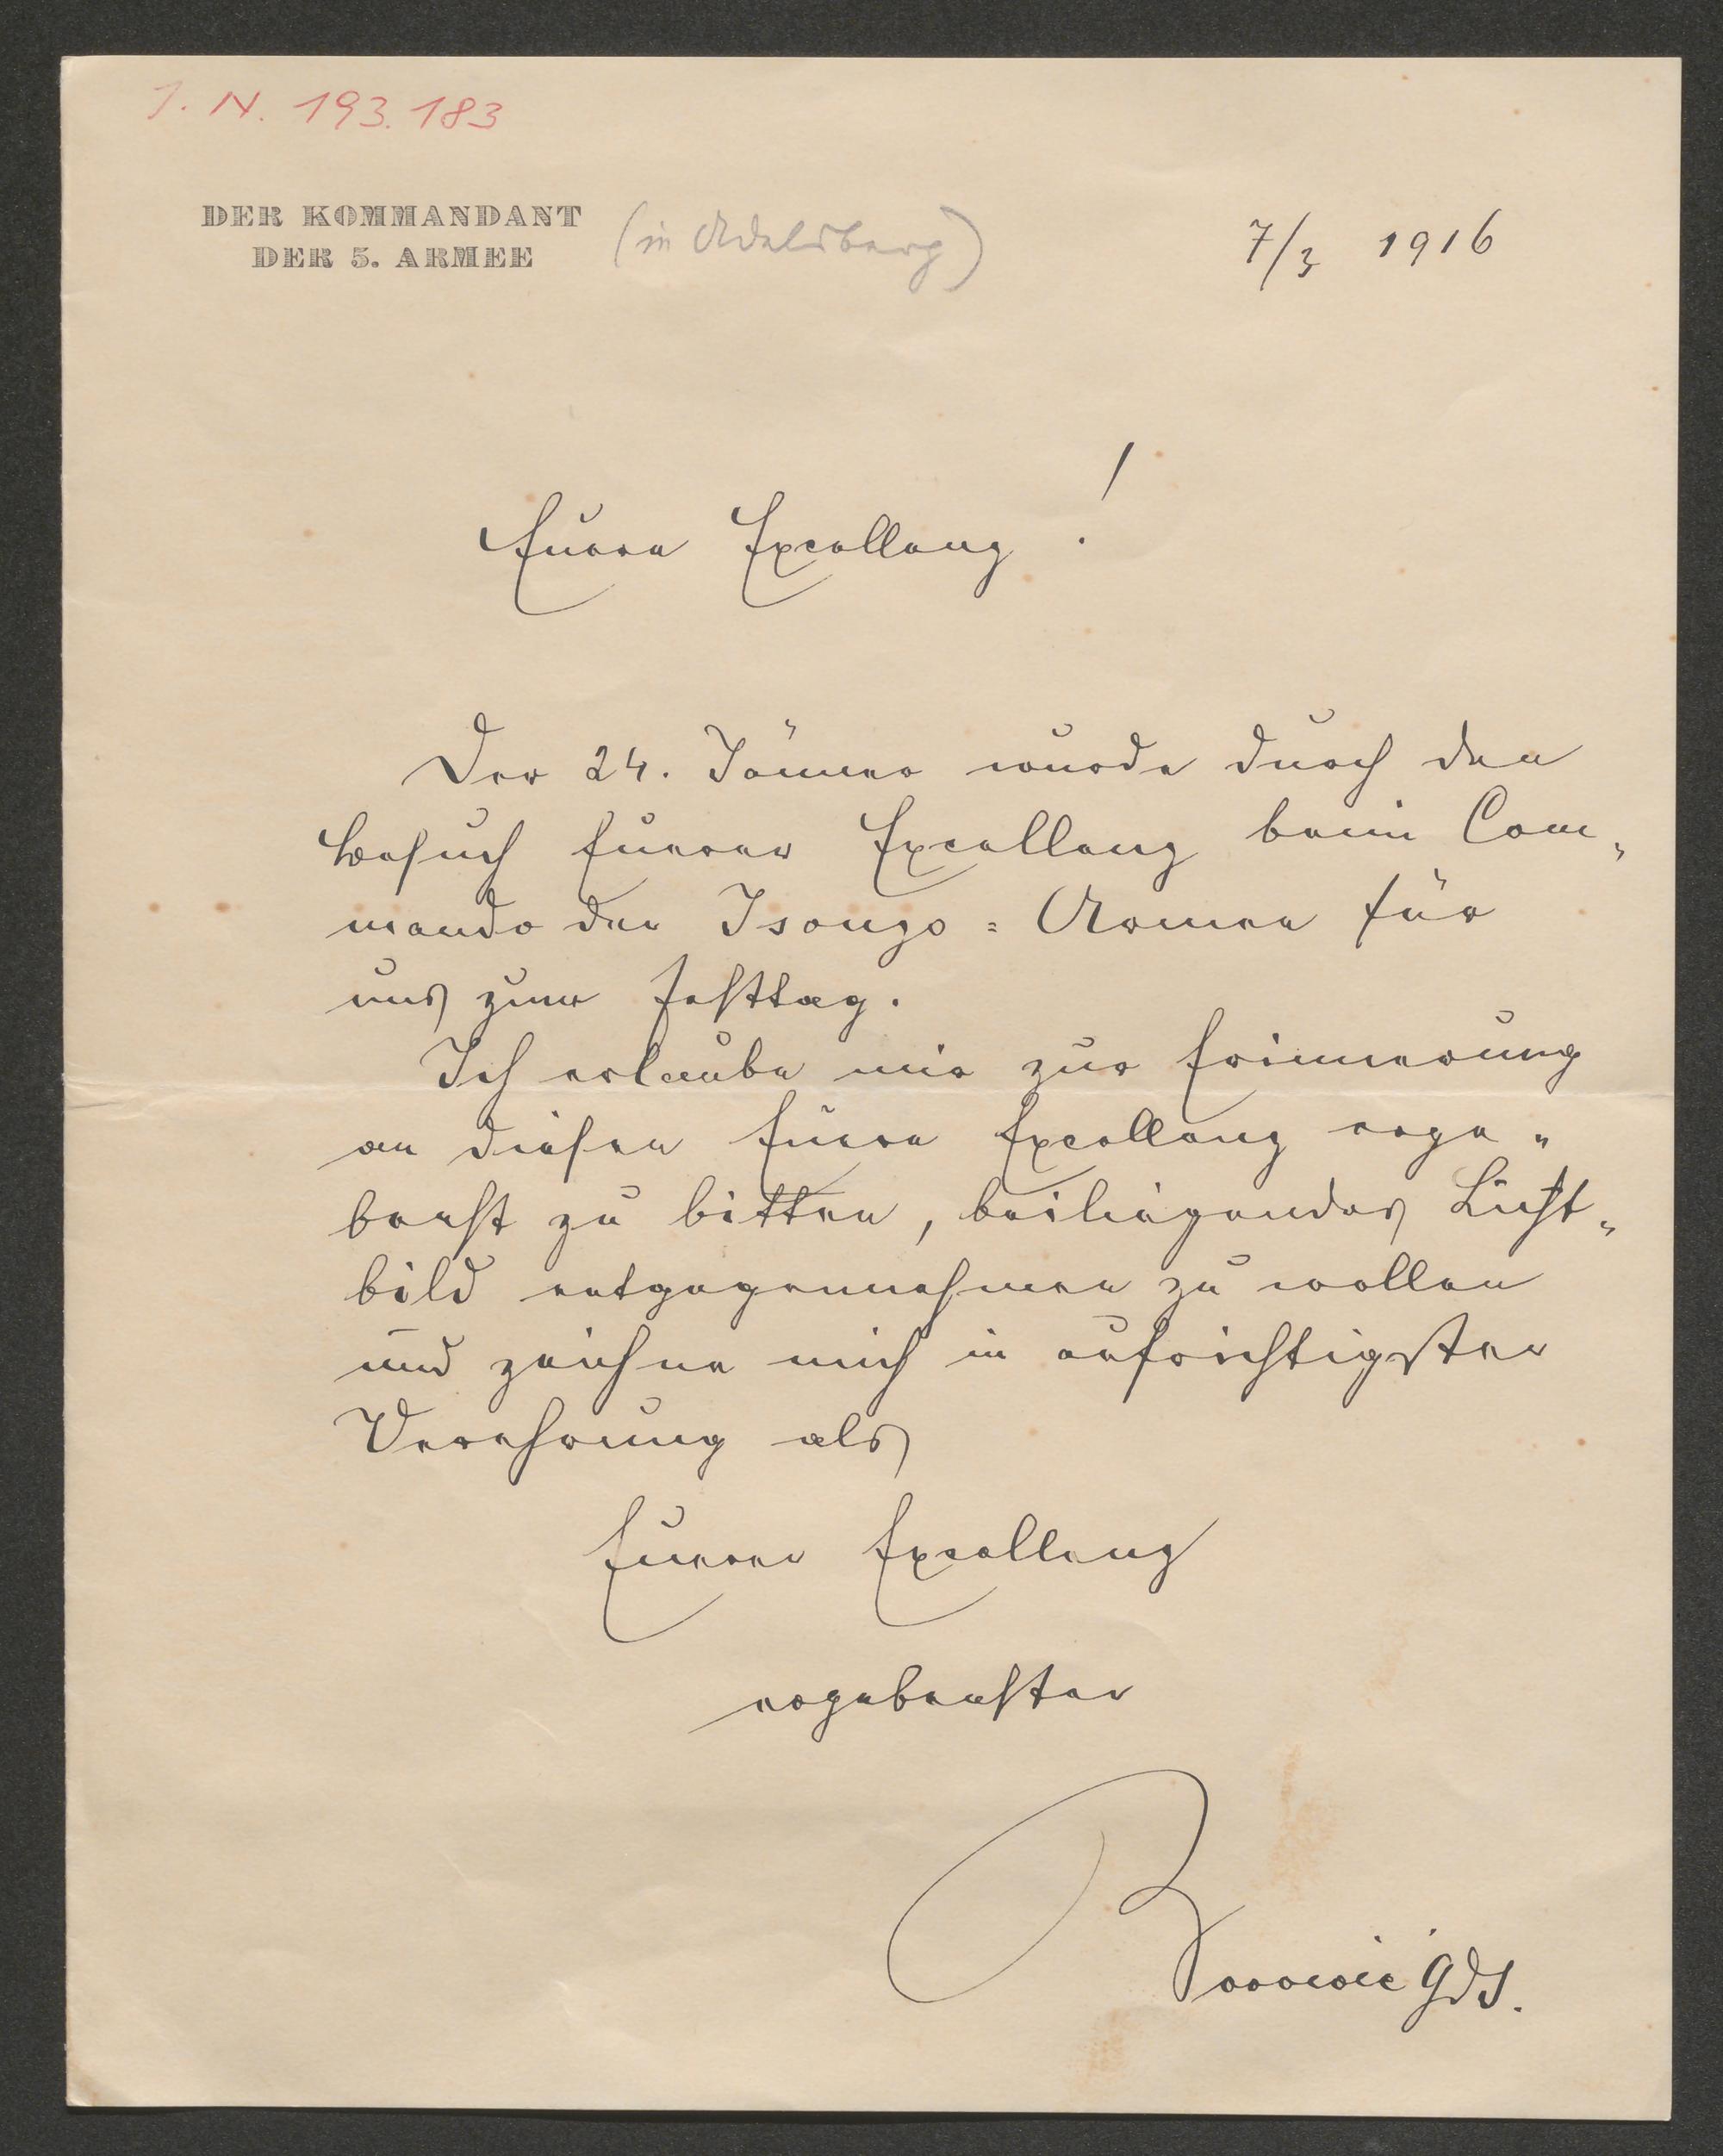 I. N. 193.183
DER KOMMANDANT (in Adelsberg) 7/3 1916
DER 5. ARMEE
Euere Excellenz!
Der 24. Jänner wurde durch den
Besuch Euerer Excellenz beim Com„
mando der Isonzo=Armee für
uns zum Festtag.
Ich erlaube mir zur Erinnerung
an diesen Euere Excellenz erge„
benst zu bitten, beiliegendes Licht„
bild entgegennehmen zu wollen
und zeichne mich in aufrichtigster
Verehrung als
Euerer Excellenz
ergebenster
Boroević GdI.